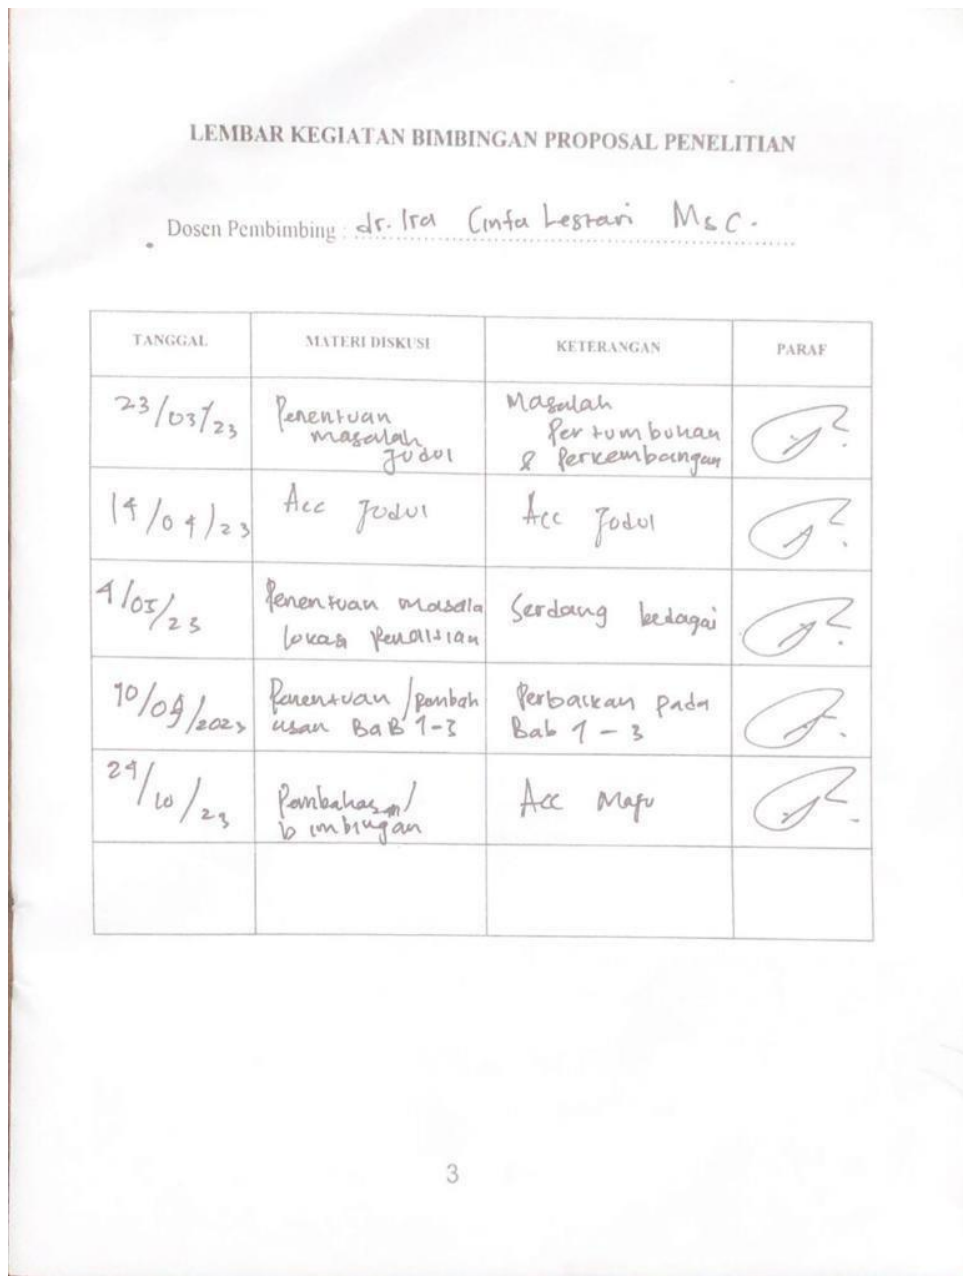 LEMBAR KEGIATAN BIMBINGAN PROPOSAL PENELITIAN
Dosen Pembimbing : dr. Ira Cinta Lestari MsC.
TANGGAL MATERI DISKUSI KETERANGAN PARAF
23/03/23
Penentuan
masalah
Judul
Masalah
Pertumbuhan
& Perkembangan
14/04/23
Acc Judul
Acc Judul
4/05/23
Penentuan masala
lokasi Penelitian
Serdang bedagai
10/09/2023
Penentuan/pembah
asan BaB 1-3
Perbaikan pada
Bab 1 - 3
24/10/23
Pembahasan/
bimbingan
Acc Maju
3